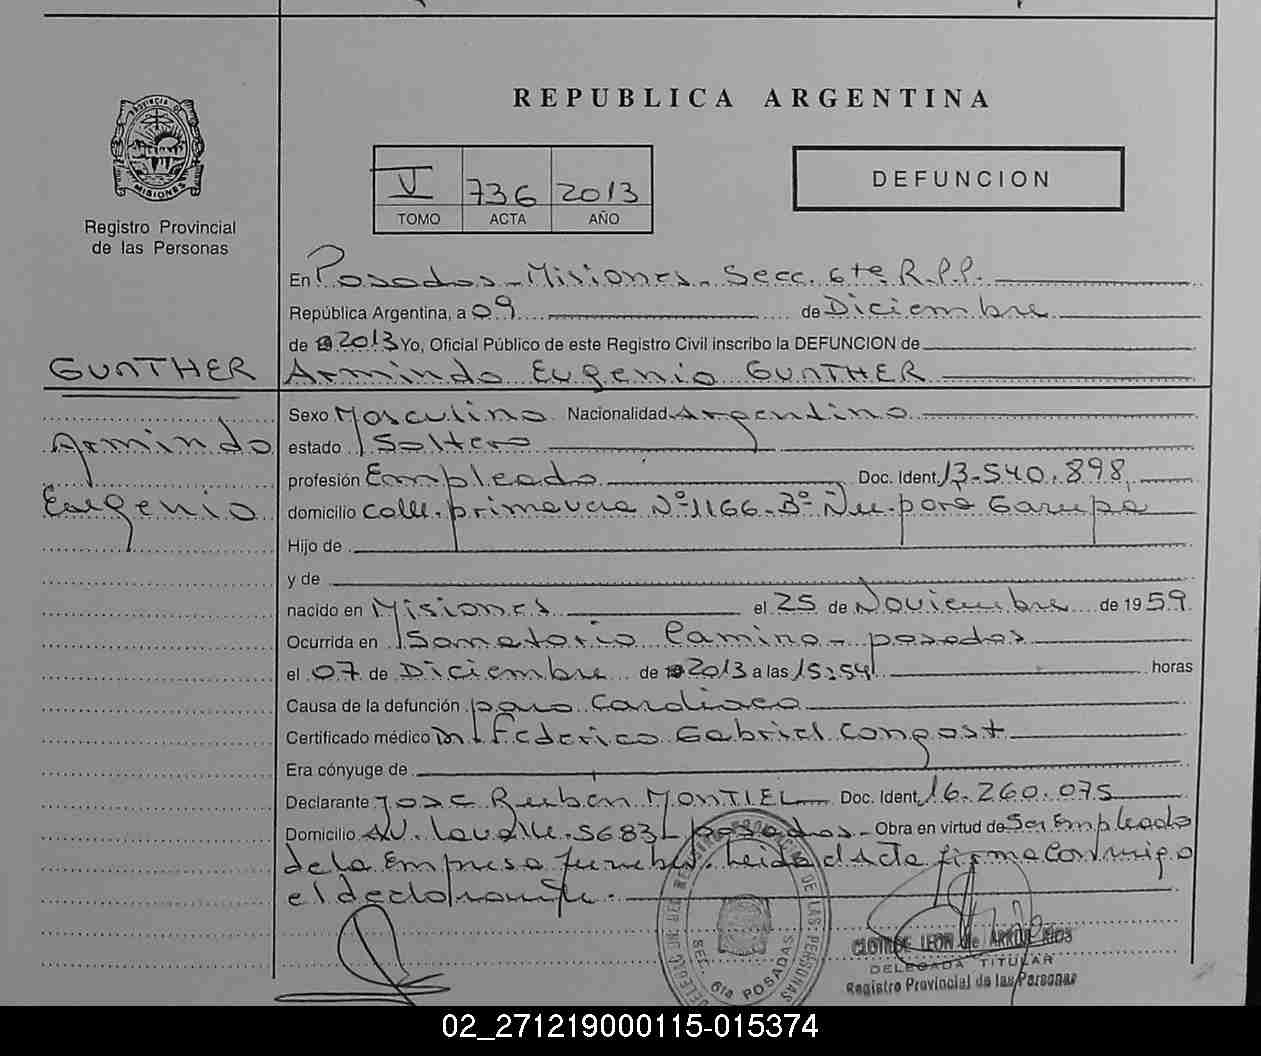 REPUBLICA ARGENTINA
PROVINCIA DE MISIONES
Registro Provincial
de las Personas
V 736 2013
TOMO ACTA AÑO
DEFUNCION
En Posadas - Misiones - Secc. 6ta R.P.P.
República Argentina, a 09 de Diciembre
de 2013 Yo, Oficial Público de este Registro Civil inscribo la DEFUNCION de
GUNTHER
Armindo Eugenio GUNTHER
Armindo
Eugenio
Sexo Masculino Nacionalidad Argentino
estado Soltero
profesión Empleado Doc. Ident. 13.540.898
domicilio calle primavera Nº 1166 - Bº Ñu-pora Garupa
Hijo de
y de
nacido en Misiones el 25 de Noviembre de 1959
Ocurrida en Sanatorio Camino - posadas
el 07 de Diciembre de 2013 a las 15:54 horas
Causa de la defunción paro Cardiaco
Certificado médico Dr. Federico Gabriel Congost
Era cónyuge de
Declarante Jose Ruben MONTIEL Doc. Ident. 16.260.075
Domicilio AV. Lavalle - 5683 - posadas - Obra en virtud de Ser Empleado
de la Empresa funebre. Leida el Acta firma Conmigo
el declarante.
DELEGADA TITULAR
Registro Provincial de las Personas
SEC. 6ta POSADAS
02_271219000115-015374